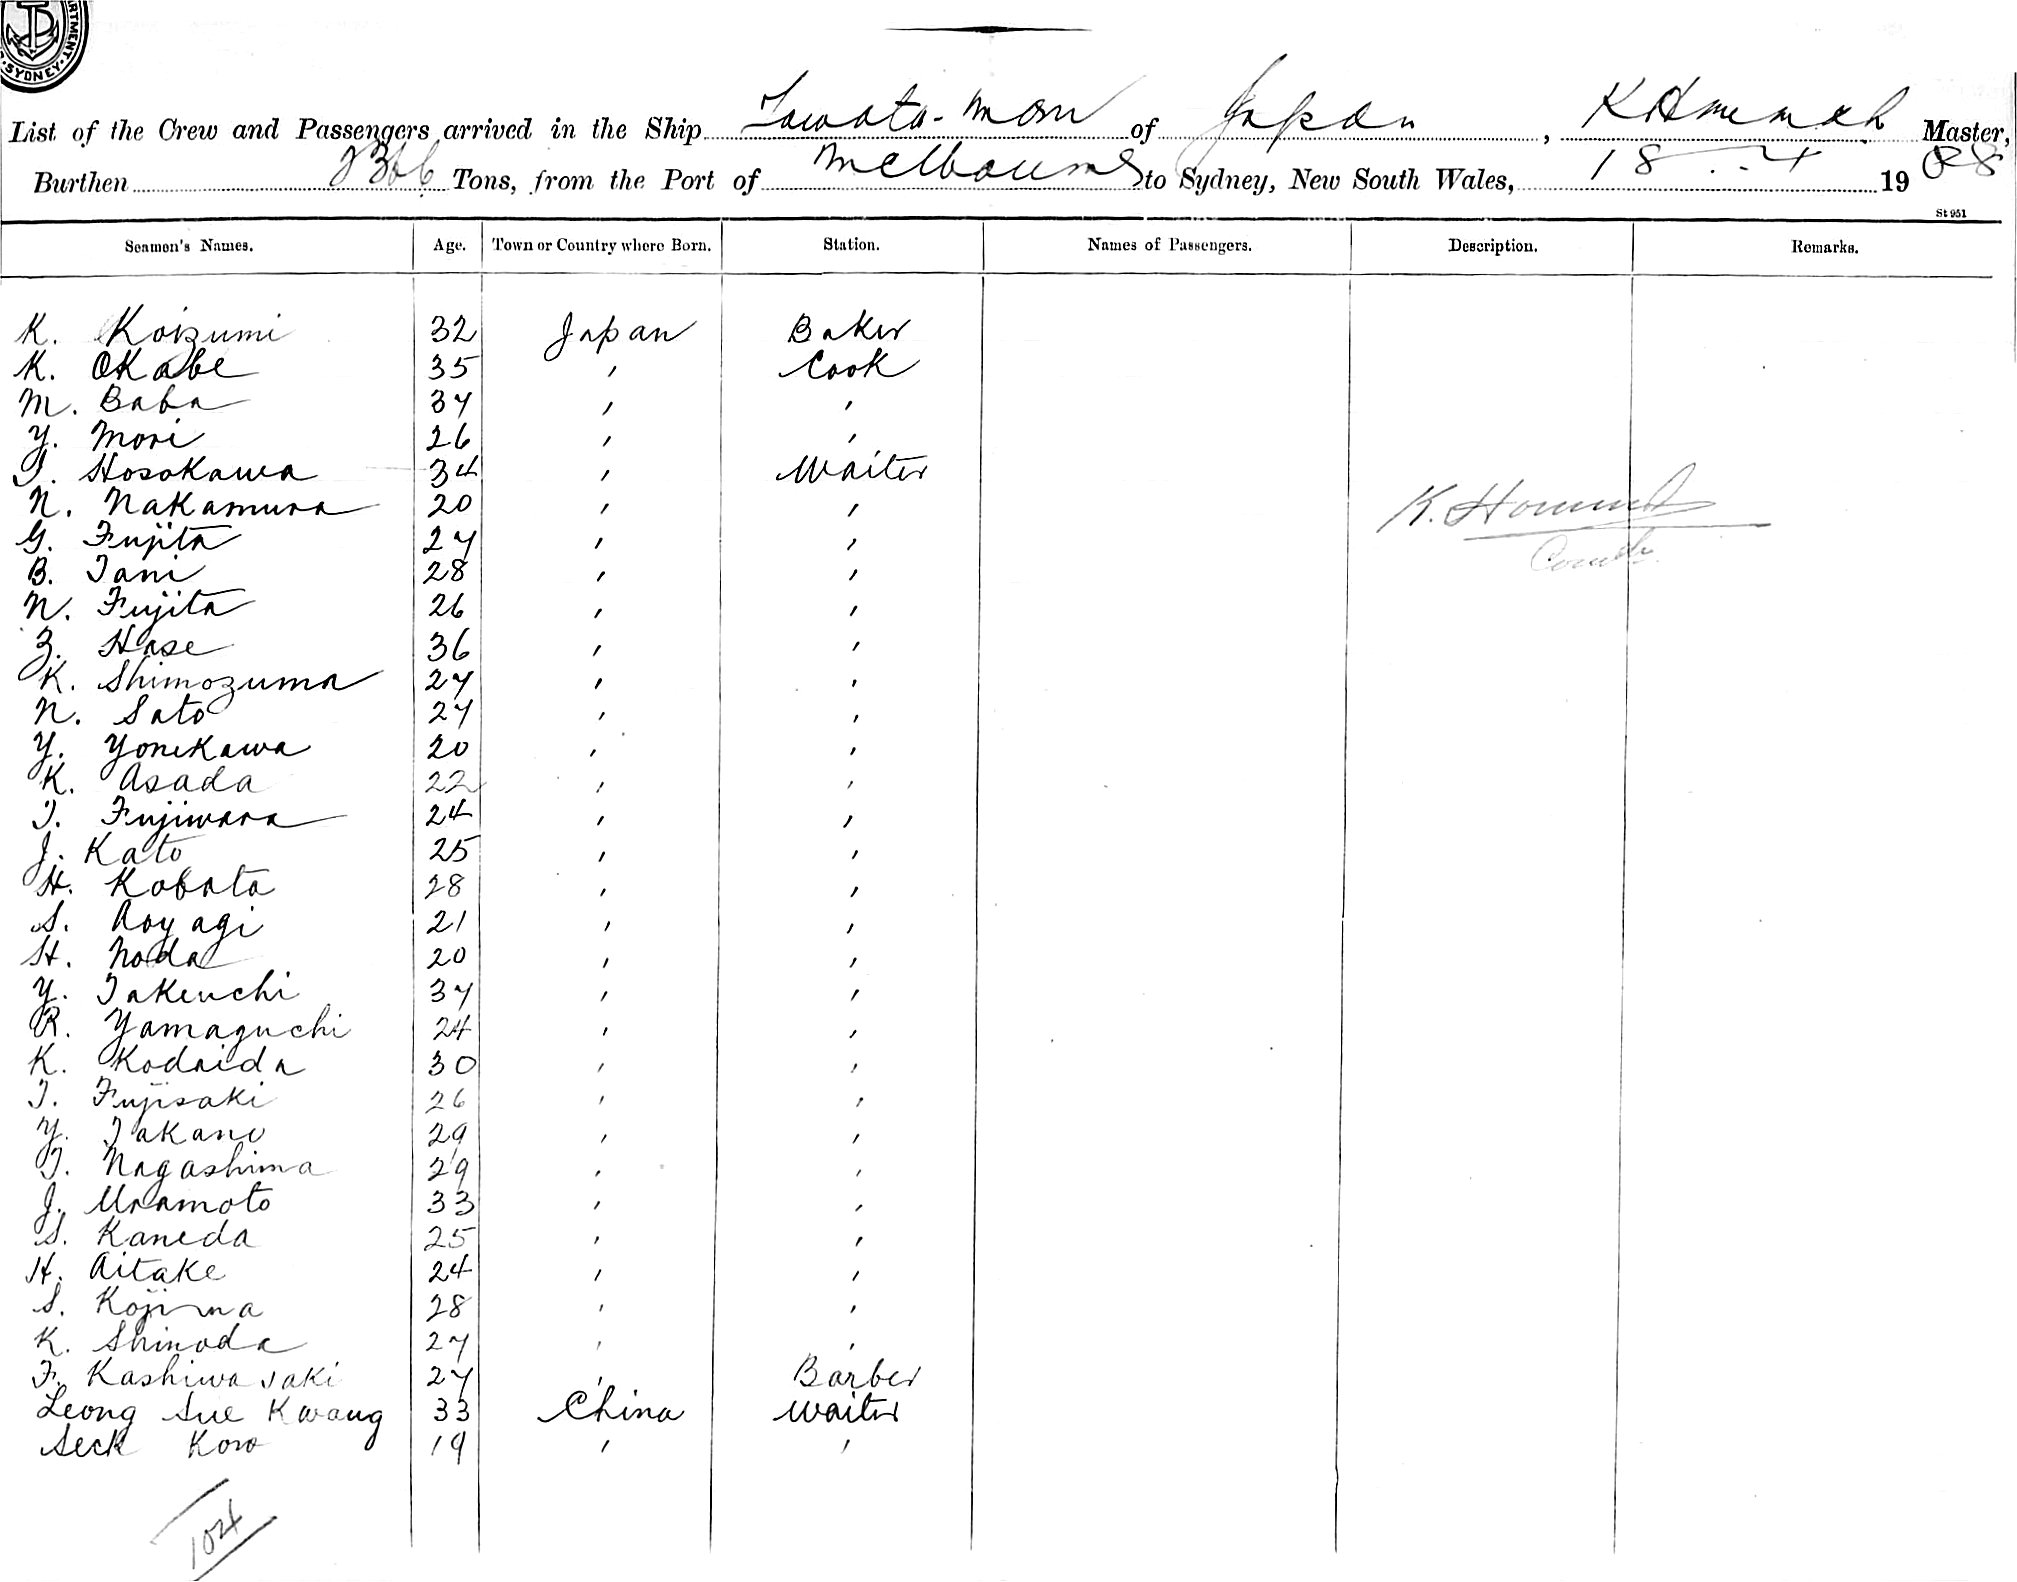 ARTMENT. SYDNEY.
List of the Crew and Passengers arrived in the Ship of Japan, Master,
Burthen Tons, from the Port of Melbourne to Sydney, New South Wales, 18 . 4 1908
St 951
Seamen's Names. Age. Town or Country where Born. Station. Names of Passengers. Description. Remarks.
K. Koizumi 32 Japan Baker
K. Okabe 35 , Cook
M. Baba 37 , ,
Y. Mori 26 , ,
T. Hosokawa 34 , Waiter
N. Nakamura 20 , ,
K.
G. Fujita 27 , ,
B. Tani 28 , ,
N. Fujita 26 , ,
Z. Hase 36 , ,
K. Shimozuma 27 , ,
N. Sato 27 , ,
Y. Yonekawa 20 , ,
K. Asada 22 , ,
T. Fujiwara 24 , ,
J. Kato 25 , ,
H. Kobata 28 , ,
S. Aoyagi 21 , ,
H. Noda 20 , ,
Y. Takeuchi 37 , ,
R. Yamaguchi 24 , ,
K. Kodaida 30 , ,
T. Fujisaki 26 , ,
Y. Takano 29 , ,
T. Nagashima 29 , ,
J. Uramoto 33 , ,
S. Kaneda 25 , ,
H. Aitake 24 , ,
S. Kojima 28 , ,
K. Shinoda 27 , ,
F. Kashiwasaki 27 , Barber
Leong Sue Kwang 33 China Waiter
Seck Kow 19 , ,
104